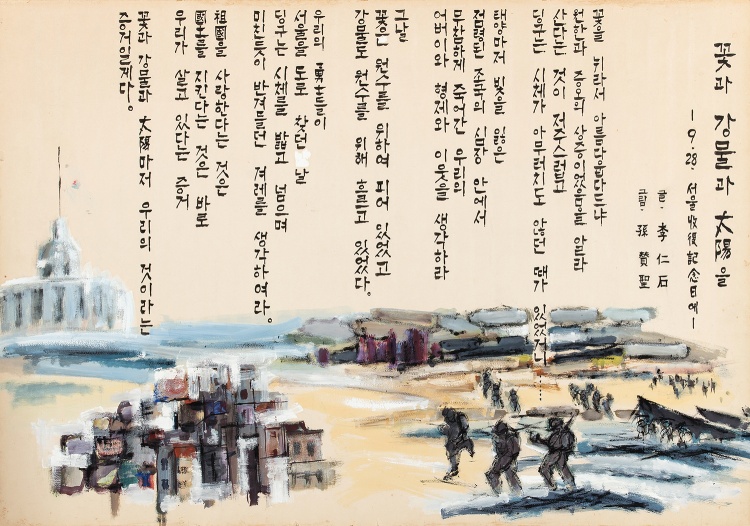 꽃과 강물과 太陽을
—9.28. 서울收復記念日에—
글. 李仁石
그림. 孫贊聖
꽃을 뉘라서 아름답답드냐
원한과 증오의 상증이었음을 알라
산다는 것이 저주스럽고
딩구는 시체가 아무러치도 않던 때가 있었거니……
태양마저 빛을 잃은
점령된 조국의 심장 안에서
무참하게 죽어간 우리의
어버이와 형제와 이웃을 생각하라
그날
꽃은 원수를 위하여 피어 있었고
강물도 원수를 위해 흐르고 있었다.
우리의 勇士들이
서울을 도로 찾던 날
딩구는 시체를 밟고 넘으며
미친듯이 반겨들던 겨레를 생각하여라.
祖國을 사랑한다는 것은
國土를 지킨다는 것은 바로
우리가 살고 있다는 증거
꽃과 강물과 太陽마저 우리의 것이라는
증거일께다.